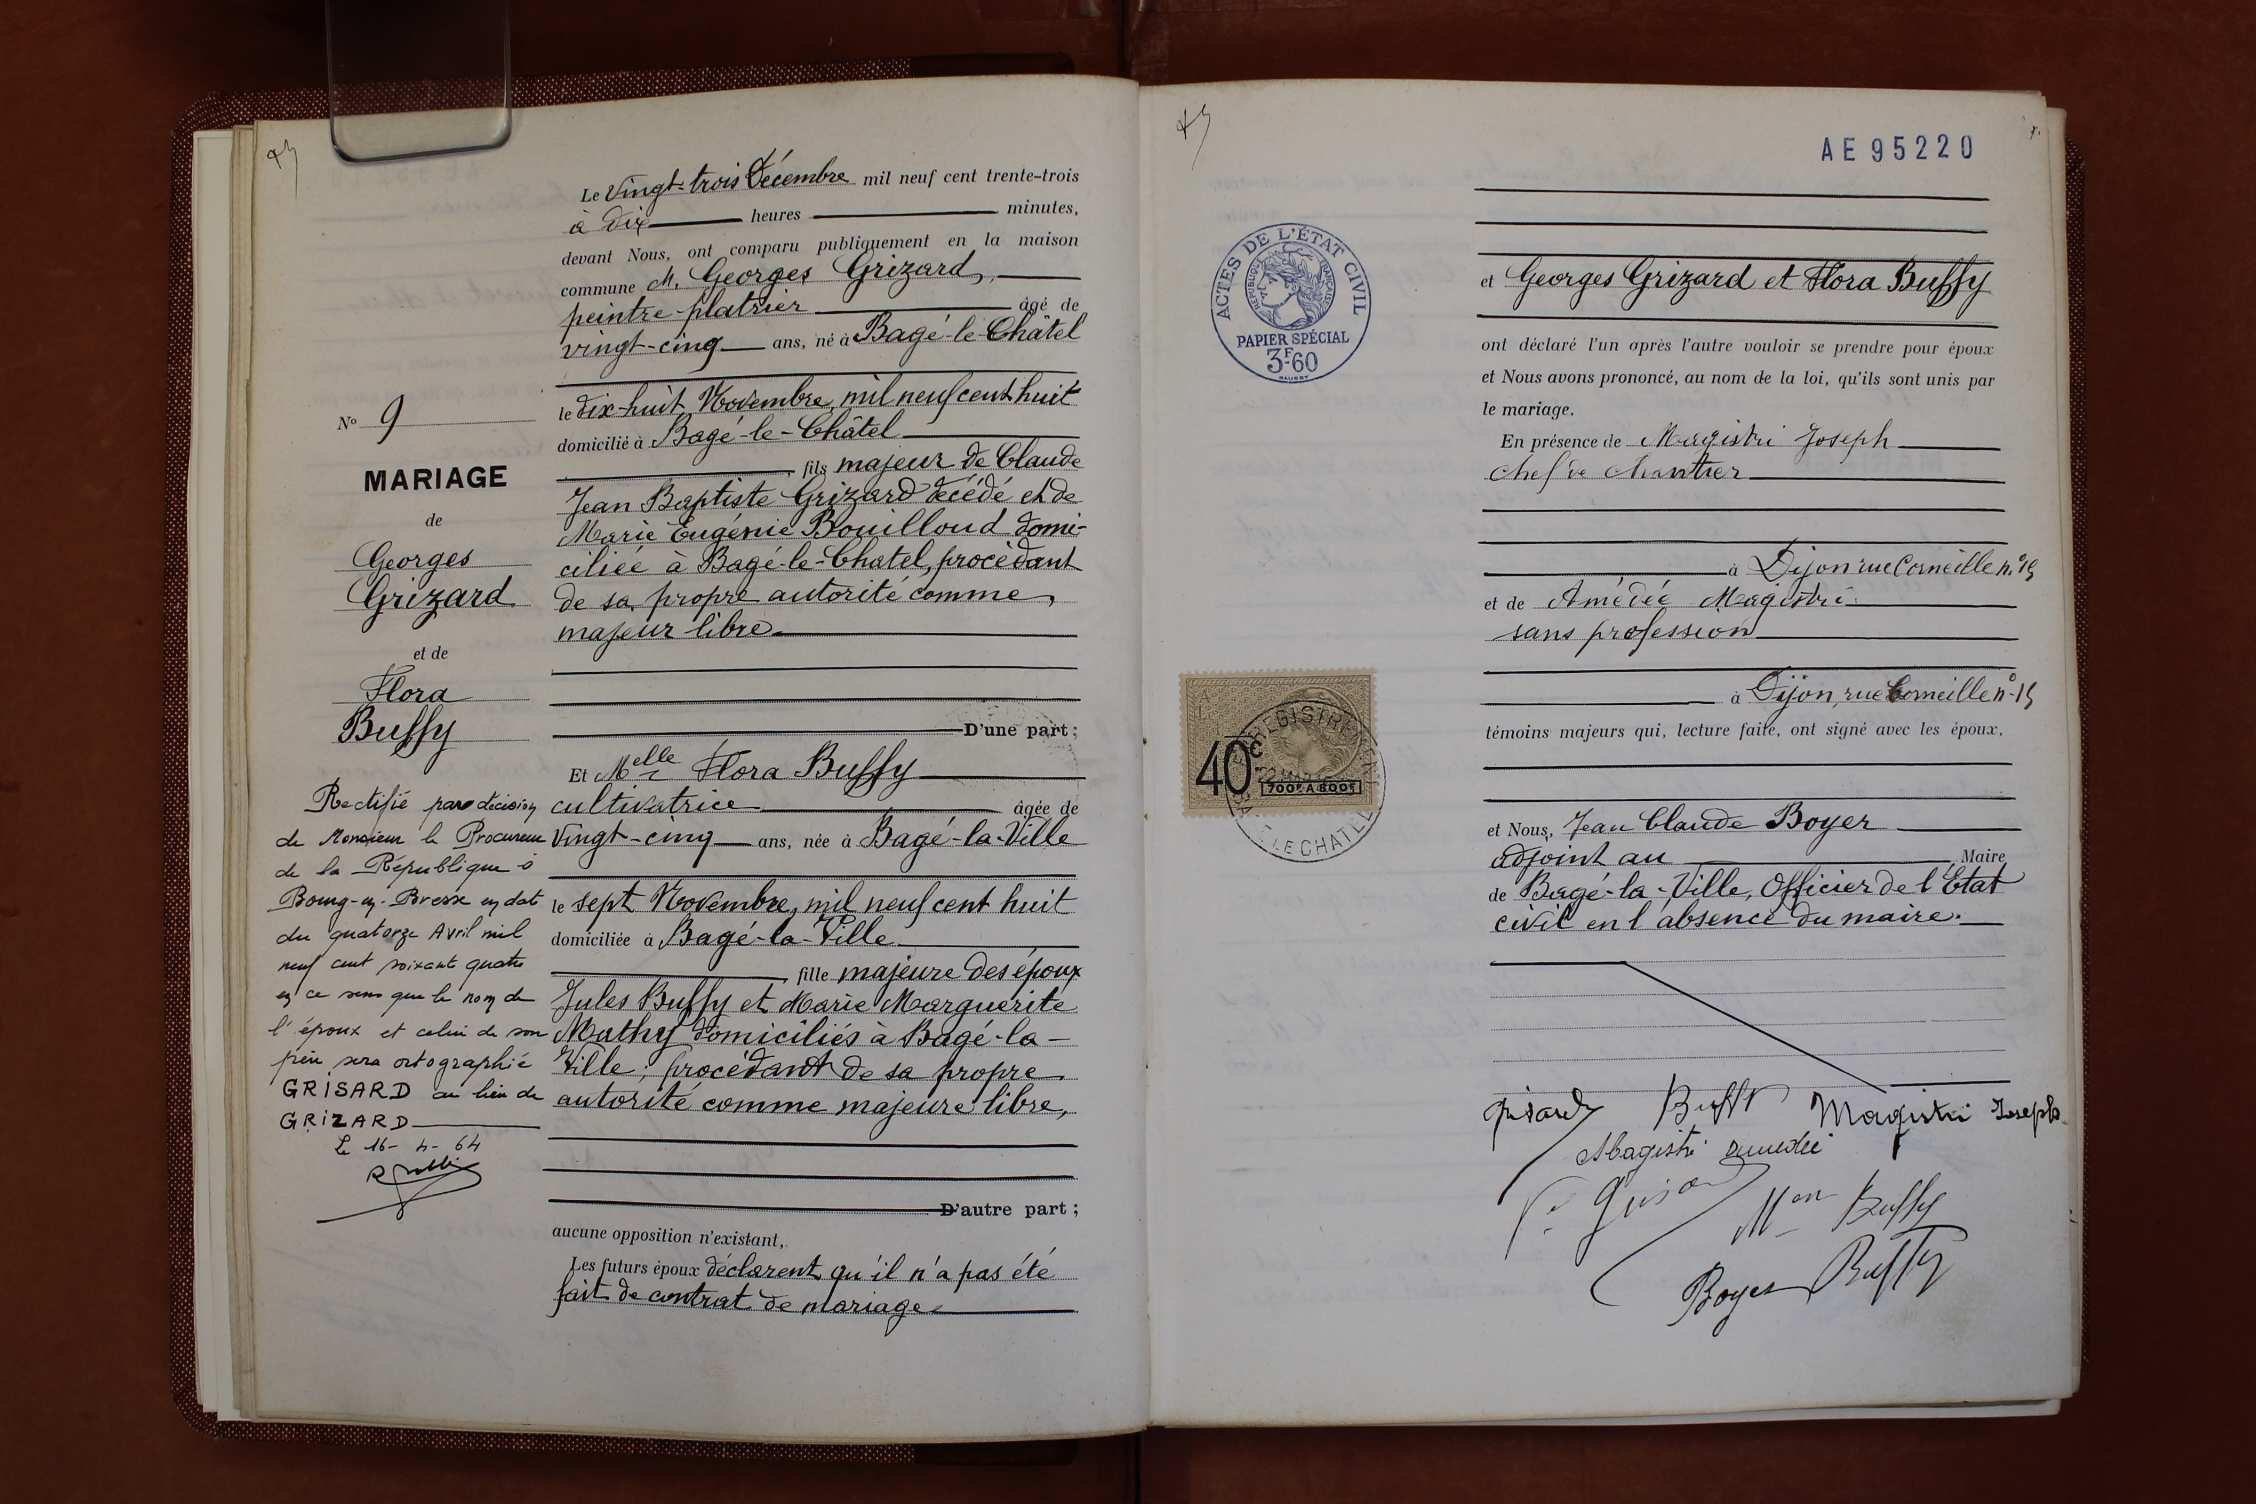 Le Vingt-trois Décembre mil neuf cent trente-trois
à dix heures minutes,
devant Nous, ont comparu publiquement en la maison
commune M. Georges Grizard,
peintre-platrier âgé de
vingt-cinq ans, né à Bagé-le-Châtel
le dix-huit Novembre, mil neuf cent huit
domicilié à Bagé-le-Châtel
fils majeur de Claude
Jean Baptiste Grizard décédé et de
Marie Eugénie Bouilloud domi-
ciliée à Bagé-le-Chatel, procédant
de sa propre autorité comme
majeur libre.
D'une part ;
Et Melle Flora Buffy
cultivatrice âgée de
Vingt-cinq ans, née à Bagé-la-Ville
le sept Novembre, mil neuf cent huit
domiciliée à Bagé-la-Ville
fille majeure des époux
Jules Buffy et Marie Marguerite
Mathy domiciliés à Bagé-la-
Ville ; procédant de sa propre
autorité comme majeure libre,
D'autre part ;
aucune opposition n'existant,
Les futurs époux déclarent qu'il n'a pas été
fait de contrat de mariage.
No 9
MARIAGE
de
Georges
Grizard
et de
Flora
Buffy
Rectifié par décision
de Monsieur le Procureur
de la République à
Bourg-en-Bresse en date
du quatorze Avril mil
neuf cent soixante quatre
en ce sens que le nom de
l'époux et celui de son
père sera ortographié
GRISARD au lieu de
GRIZARD
Le 16-4-64
AE 95220
ACTES DE L'ÉTAT CIVIL
RÉPUBLIQUE FRANÇAISE
PAPIER SPÉCIAL
3F60
et Georges Grizard et Flora Buffy
ont déclaré l'un après l'autre vouloir se prendre pour époux
et Nous avons prononcé, au nom de la loi, qu'ils sont unis par
le mariage.
En présence de Magistri Joseph
chef de chantier
à Dijon rue Corneille n° 15
et de Amédée Magistri
sans profession
à Dijon, rue Corneille n° 15
témoins majeurs qui, lecture faite, ont signé avec les époux,
et Nous, Jean Claude Boyer
adjoint au Maire
de Bagé-la-Ville, Officier de l'Etat
civil en l'absence du maire.
40c
700F A 800F
LE CHATEL
Grisard Buffy Magistri Joseph
Magistri Amédée
Grisard
Buffy
Boyer Buffy